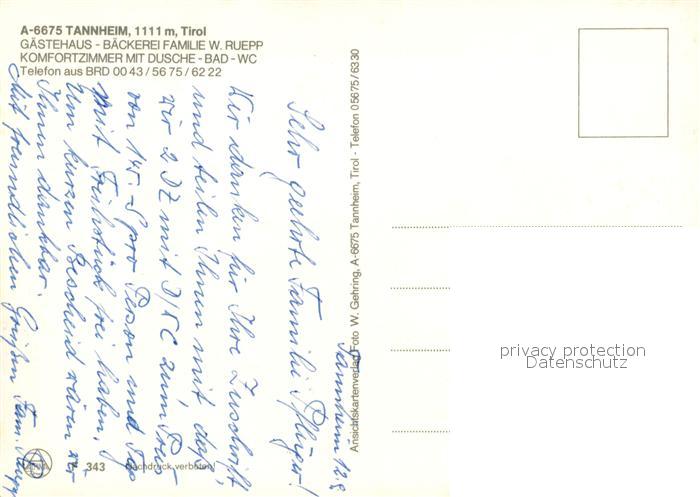 A-6675 TANNHEIM, 1111 m, Tirol
GÄSTEHAUS - BÄCKEREI FAMILIE W. RUEPP
KOMFORTZIMMER MIT DUSCHE - BAD - WC
Telefon aus BRD 00 43 / 56 75 / 62 22
Tannheim 12.8
Sehr geehrte Familie Pflüger!
Wir danken für Ihre Zuschrift
und teilen Ihnen mit daß
wir 2 DZ mit D/WC zum Preis
von 145.- S pro Person und Tag
mit Frühstück frei haben.
Um kurzen Bescheid wären wir
Ihnen dankbar.
Mit freundlichen Grüßen Fam. Ruepp
Ansichtskartenverlag Foto W. Gehring, A-6675 Tannheim, Tirol - Telefon 05675/6330
343 Nachdruck verboten
privacy protection
Datenschutz